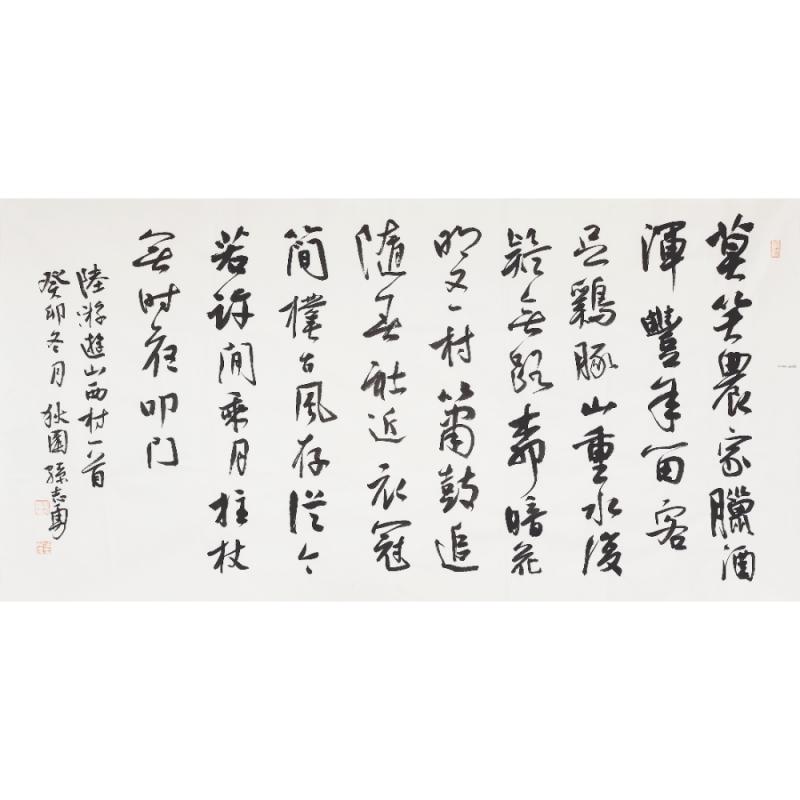 莫笑農家臘酒
渾豐年留客
足鷄豚山重水複
疑無路柳暗花
明又一村簫鼓追
隨春社近衣冠
簡樸古風存從今
若許閒乘月拄杖
無时夜叩门
陸游遊山西村一首
癸卯冬月狄園孫志勇